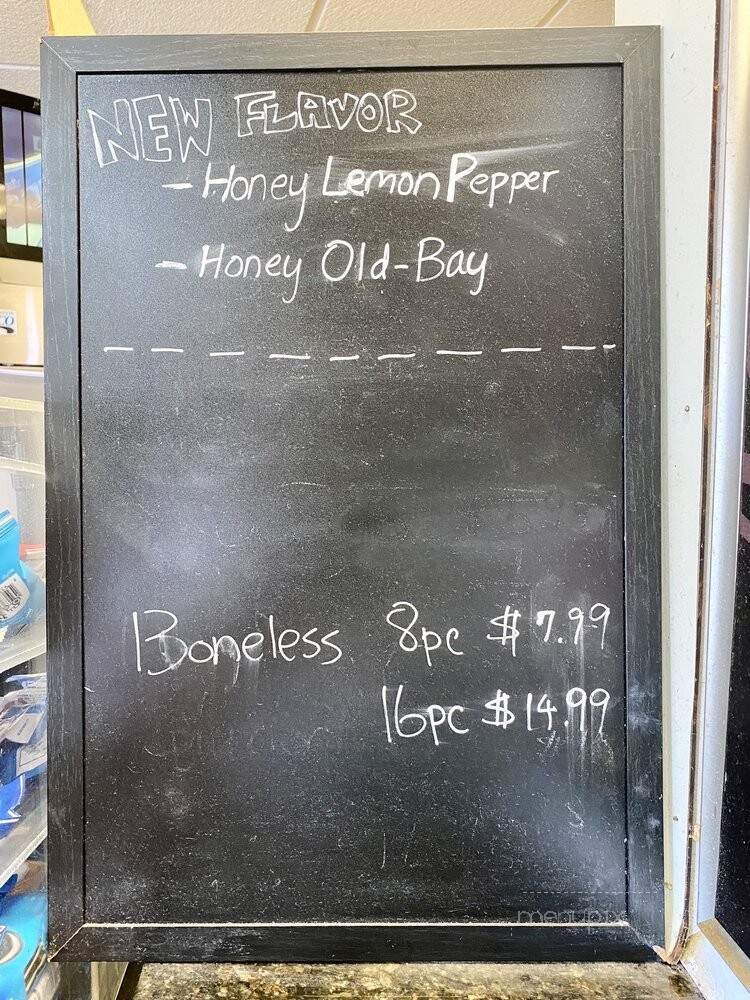 NEW FLAVOR
- Honey Lemon Pepper
- Honey Old-Bay
Boneless 8pc $7.99
16pc $14.99
menupix